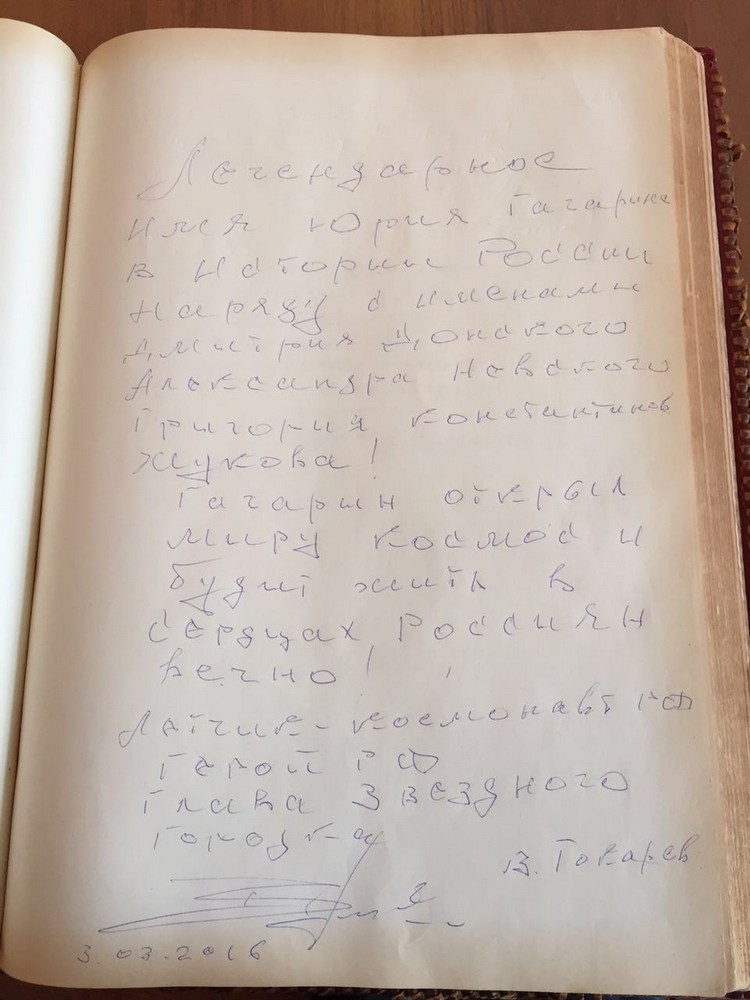 Легендарное
имя Юрия Гагарина
в Истории России
наряду с именами
Дмитрия Донского
Александра Невского
Григория Константинов
Жукова!
Гагарин открыл
миру космос и
будит жить в
сердцах Россиян
вечно!
Летчик-космонавт РФ
Герой РФ
Глава Звездного
городка
В. Токарев
3.03.2016